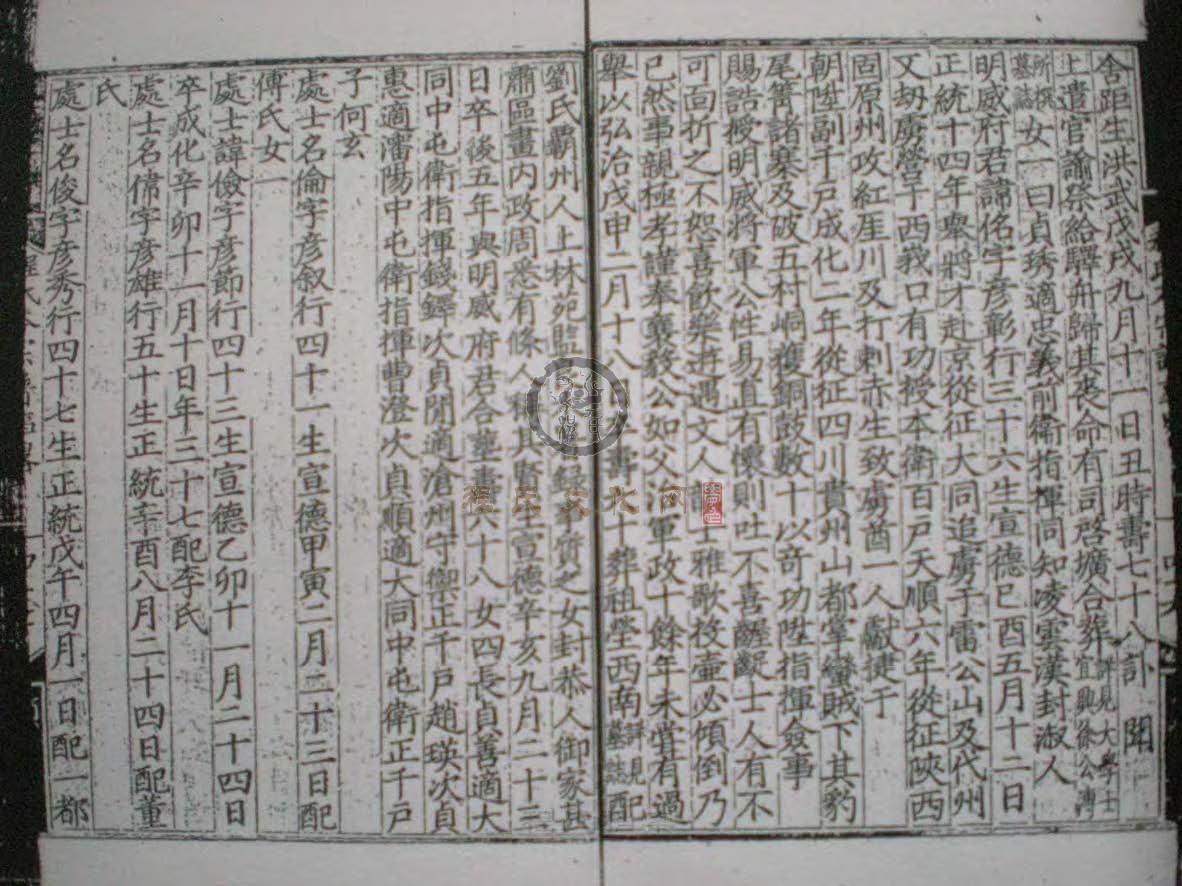 舍距生洪武戊戌九月十一日丑時壽七十八訃　聞
上遣官諭祭給驛舟歸其喪命有司啓壙合葬詳見大學士宜興徐公溥
所撰墓誌女一曰貞琇適忠義前衛指揮同知凌雲漢封淑人
明威府君諱佲字彥彰行三十六生宣德己酉五月十二日
正統十四年舉將才赴京從征大同追虜于雷公山及代州
又刼虜營于西我口有功授本衛百戶天順六年從征陝西
固原州攻紅崖川及打剌赤生致虜酋一人獻捷于
朝陞副千戶成化二年從征四川貴州山都掌蠻賊下其豹
尾箐諸寨及破五村峒獲銅鼓數十以奇功陞指揮僉事
賜誥授明威將軍公性易直有懷則吐不喜齷齪士人有不
可面折之不恕喜飲樂遊遇文人士雅歌投壺必傾倒乃
已然事親極孝謹奉襄毅公如父涖軍政十餘年未嘗有過
舉以弘治戊申二月十八日卒壽六十葬祖塋西南詳見墓誌配
劉氏霸州人上林苑監錄事質之女封恭人御家甚
肅區畫內政周悉有條人稱其賢生宣德辛亥九月二十三
日卒後五年與明威府君合葬壽六十八女四長貞善適大
同中屯衛指揮錢鐸次貞閉適滄州守禦正千戶趙瑛次貞
惠適瀋陽中屯衛指揮曹澄次貞順適大同中屯衛正千戶
子何玄
處士名倫字彥叙行四十一生宣德甲寅二月二十三日配
傅氏女一
處士諱儉字彥節行四十三生宣德乙卯十一月二十四日
卒成化辛卯十一月十日年三十七配李氏
處士名偉字彥雄行五十生正統辛酉八月二十四日配董
氏
處士名俊字彥秀行四十七生正統戊午四月一日配一都
程氏文化网